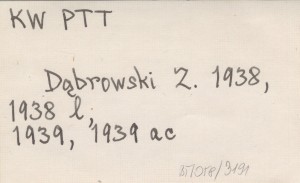 KW PTT
Dąbrowski Z. 1938,
1938 l,
1939, 1939 ac
/3191